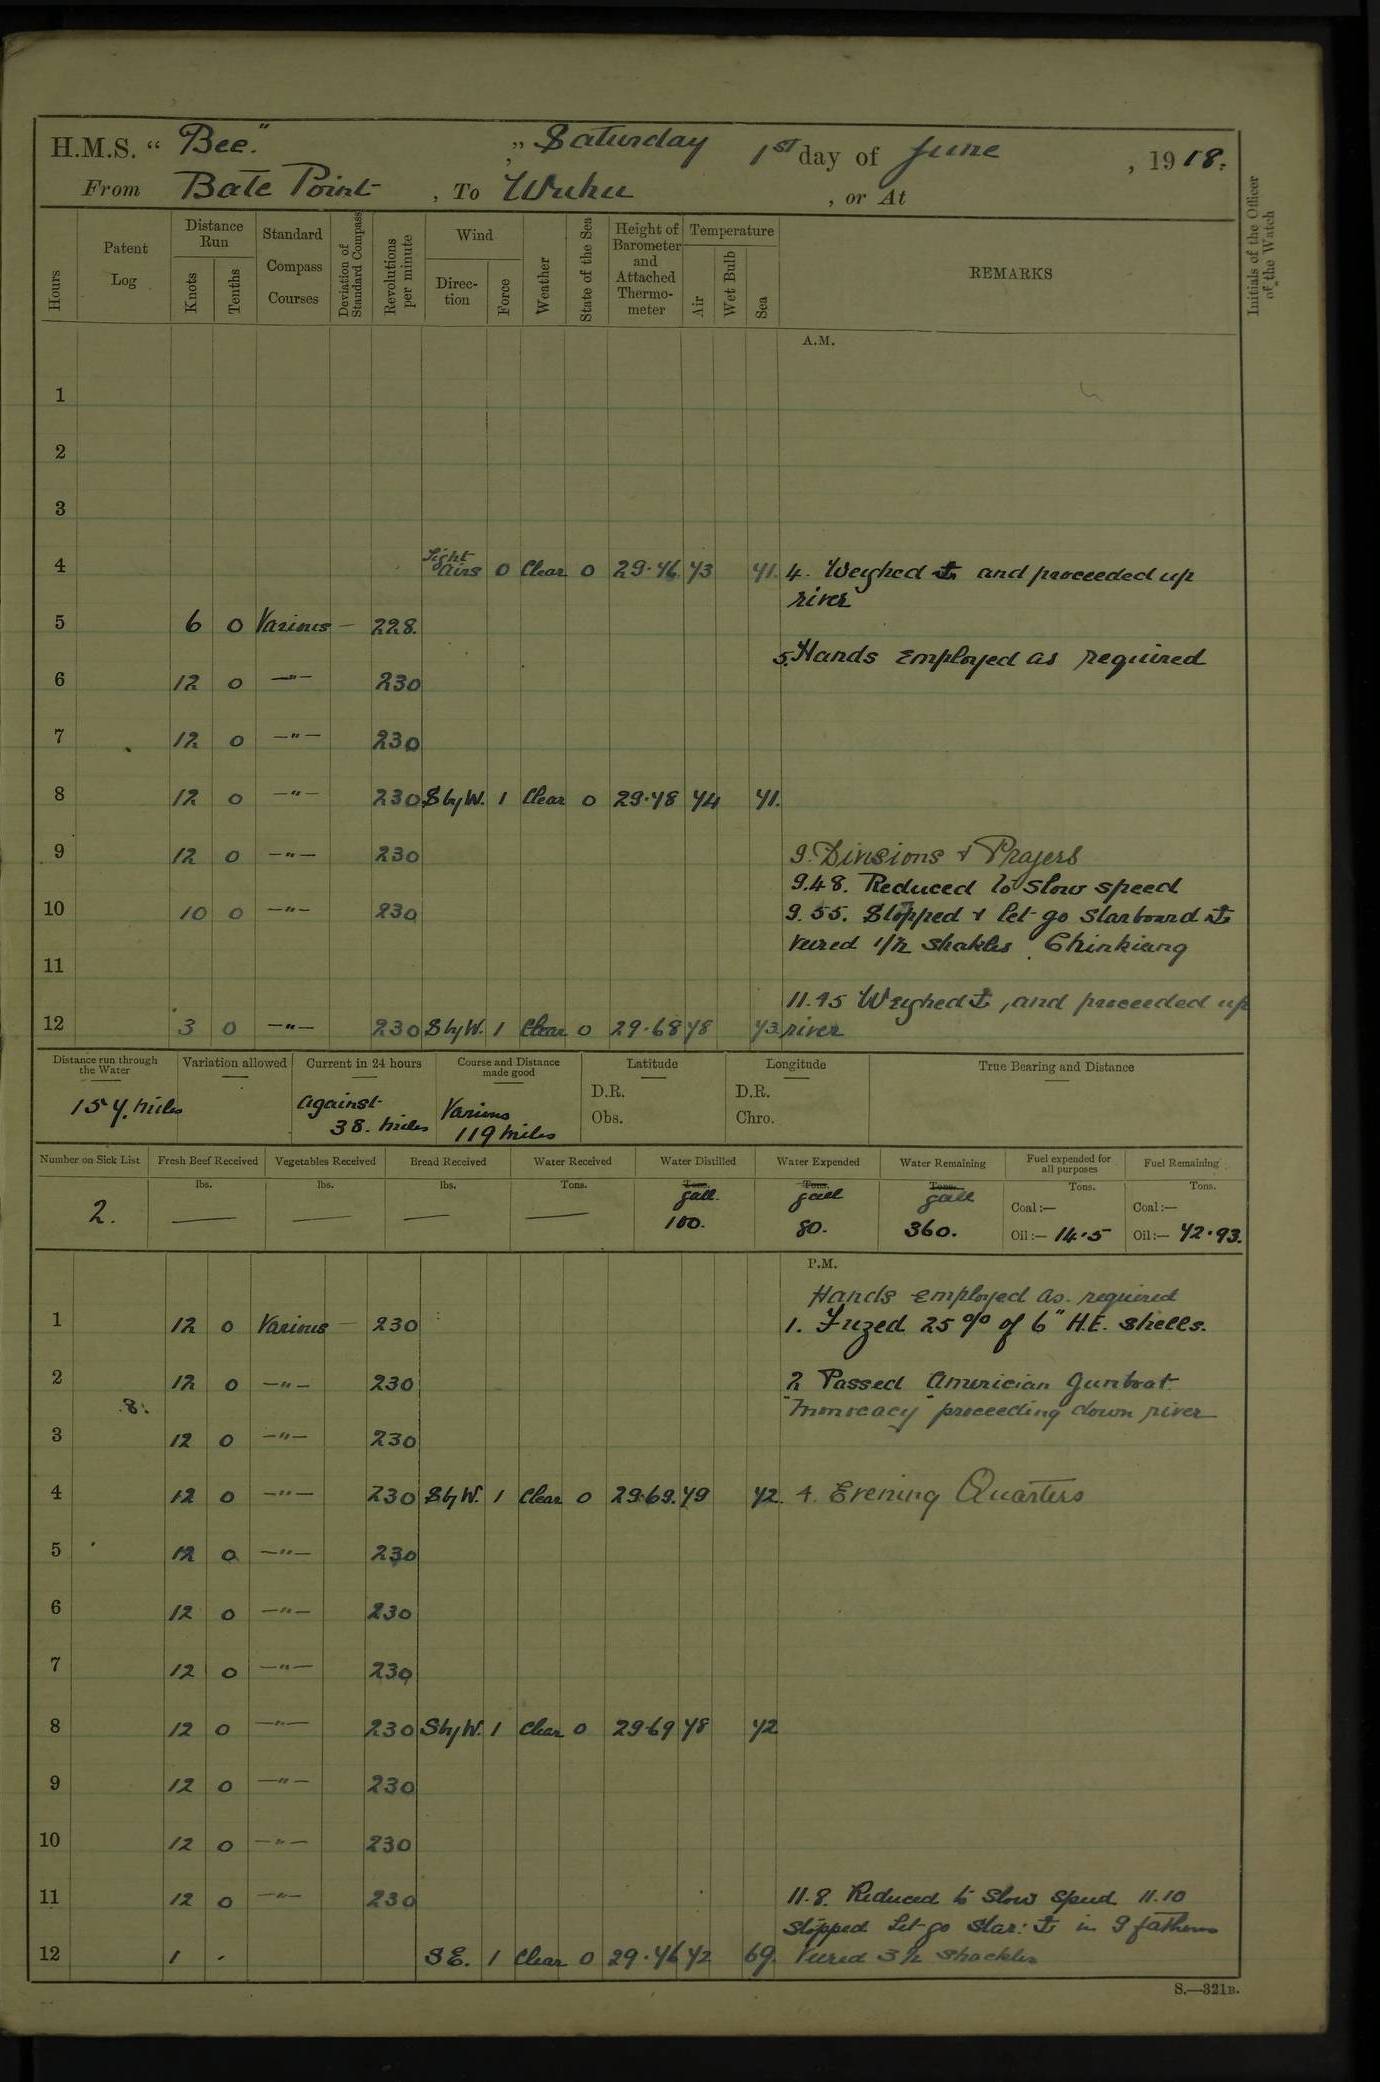 H.M.S. "Bee." , " Saturday 1st day of June , 1918.
From Bate Point , To Wuhu , or At
Hours
Patent Log
Distance Run
Knots
Tenths
Standard Compass Courses
Deviation of Standard Compass
Revolutions per minute
Wind
Direction
Force
Weather
State of the Sea
Height of Barometer and Attached Thermometer
Temperature
Air
Wet Bulb
Sea
REMARKS
Initials of the Officer of the Watch
A.M.
1
2
3
4 Light Airs 0 Clear 0 29.76 73 71. 4. Weighed ⚓ and proceeded up
river
5 6 0 Various — 228.
5. Hands employed as required
6 12 0 —"— 230
7 12 0 —"— 230
8 12 0 —"— 230 S by W. 1 Clear 0 29.78 74 71.
9 12 0 —"— 230 9. Divisions & Prayers
9.48. Reduced to slow speed
10 10 0 —"— 230 9.55. Stopped & let go starboard ⚓
veered 1½ shakles. Chinkiang
11
11.45 Weighed ⚓, and proceeded up
12 3 0 —"— 230 S by W. 1 Clear 0 29.68 78 73 river
Distance run through the Water
157. miles
Variation allowed
Current in 24 hours
against 38. miles
Course and Distance made good
Various 119 miles
Latitude
D.R.
Obs.
Longitude
D.R.
Chro.
True Bearing and Distance
Number on Sick List
2.
Fresh Beef Received
lbs.
—
Vegetables Received
lbs.
—
Bread Received
lbs.
—
Water Received
Tons.
—
Water Distilled
Tons.
gall.
100.
Water Expended
Tons.
gall
80.
Water Remaining
Tons.
gall
360.
Fuel expended for all purposes
Tons.
Coal:—
Oil:— 14.5
Fuel Remaining
Tons.
Coal:—
Oil:— 72.93.
P.M.
Hands employed as required
1 12 0 Various — 230 1. Fuzed 25 % of 6" H.E. shells.
2 12 0 —"— 230 2 Passed Amurician gunboat
8. "Monocacy" proceeding down river
3 12 0 —"— 230
4 12 0 —"— 230 S by W. 1 Clear 0 29.69. 79 72. 4. Evening Quarters
5 12 0 —"— 230
6 12 0 —"— 230
7 12 0 —"— 230
8 12 0 —"— 230 S by W. 1 Clear 0 29.69 78 72
9 12 0 —"— 230
10 12 0 —"— 230
11 12 0 —"— 230 11.8. Reduced to slow speed 11.10
stopped let go star: ⚓ in 9 fathoms
12 1 . S E. 1 Clear 0 29.76 72 69. Veered 3½ shackles
S.—321B.